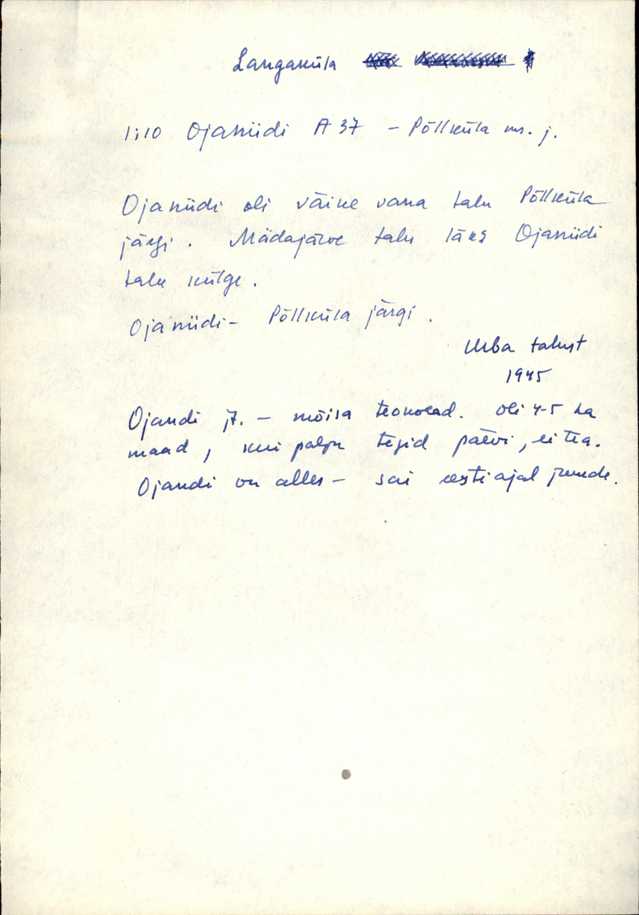 Langaküla
1:10 Ojaniidi A 37 - Põllküla ms. j.
Ojaniidi oli väike vana talu Põllküla
järgi. Mädajärve talu läks Ojaniidi
talu külge.
Ojaniidi - Põllküla järgi.
Urba talust
1945
Ojandi j. - mõisa teokoead. oli 4-5 ha
maad, kui palju tegid päevi, ei tea.
Ojandi on alles - sai eestiajal juurde.